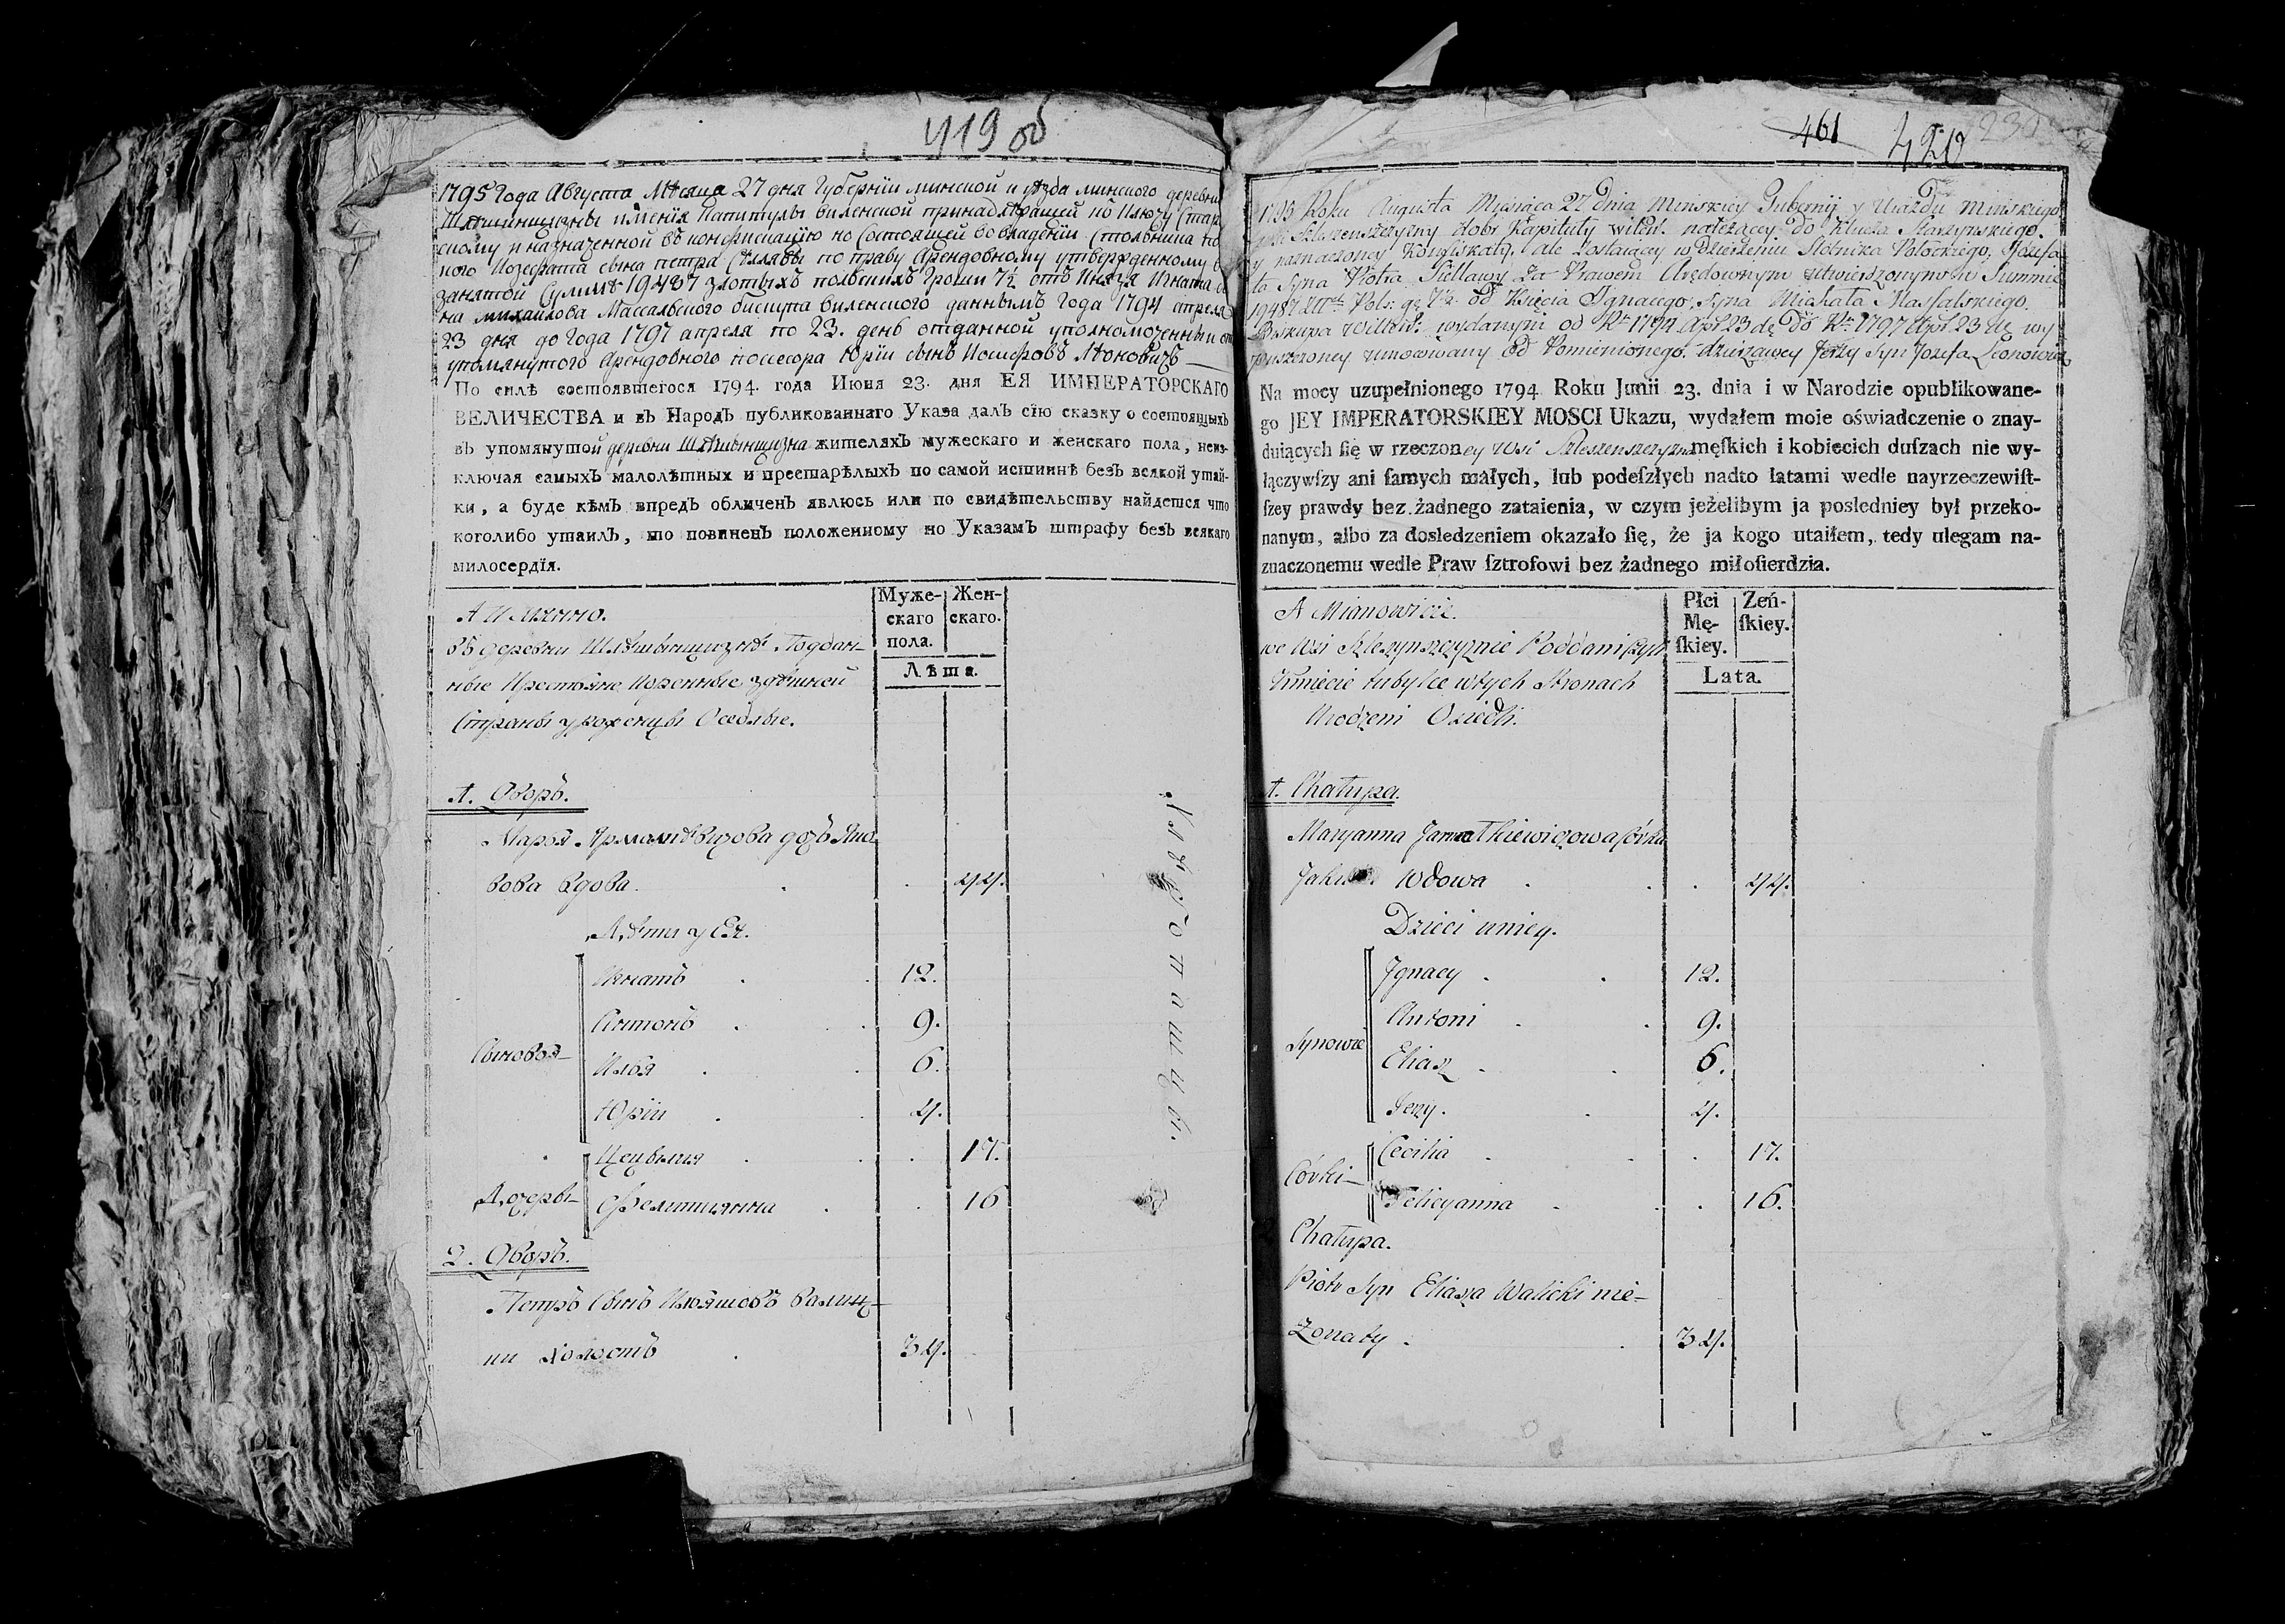 419 об
1795 Года Августа Мѣсяца 27 дня Губернїи минской и уѣзда минского деревни
Шлѣшинщизны имѣнїя Капитулы виленской принадлѣжащей ко Ключу
скому и назначенной въ конфискацїю но Состоящей во владенїи Стольника
Иозефата сына петра Селлявы по праву Арендовному утвержденному
занятой Суммѣ 19487 злотыхъ польскихъ Гроши 7½ отъ Князя Игната
на михайлова Массальского бискупа виленского даннымъ Года 1794 апреля
23 дня до Года 1797 апреля по 23. день отданной уполномоченный
упомянутого Арендовного посессора Юрїи сынъ Иосифовъ Лѣоновичъ
По силѣ состоявшегося 1794. года Июня 23. дня ЕЯ ИМПЕРАТОРСКАГО
ВЕЛИЧЕСТВА и въ Народъ публикованнаго Указа далъ сїю сказку о состоящыхъ
въ упомянутой деревни Шлѣшынщизна жителяхъ мужескаго и женскаго пола, неиз-
ключая самыхъ малолѣтныхъ и престарѣлыхъ по самой истиннѣ безъ всякой утай-
ки, а буде кѣмъ впредъ обличенъ явлюсь или по свидѣтельству найдется что
коголибо утаилъ, то повиненъ положенному по Указамъ штрафу безъ всякаго
милосердїя.
А Имянно.
Муже-
скаго
пола.
Жен-
скаго.
Лѣта.
въ деревни Шлѣшынщизнѣ Поддан-
ные Крестьяне Коренные здѣшней
Страны уроженцы Оседлые.
1. Дворъ.
Марья Ярмолкѣвичова дочь Яко
вова вдова. 44.
Дѣти у Ея.
Сыновья
Игнатъ 12.
Антонъ 9.
Илья 6.
Юрїи 4.
Дочери
Цецылия 17.
Фелициянна 16
2. Дворъ.
Петръ Сынъ Ильяшовъ Валиц-
ки холостъ 34.
461 420 230
1795 Roku Augusta Miesiąca 27 Dnia Minskiey Gubernij y Ujazdu Minskiego
Szleszenszczyzny dobr Kapituły wileń: należącey do Klucza
y naznaczoney Konfiskaty, ale zostaiącey w Dzierżeniu Stolnika Połockiego, Józefa
ta Syna Piotra Siellawy za Prawem Arędownym utwierdzonym w Summie
19487 Złł Pols: gr 7½. od Xięcia Ignacego, Syna Michała Massalskiego.
Biskupa Wileńs: wydanym od Rku 1794 Apr: 23 do Rku 1797 Apr 23 wy
puszczoney umocowany od Pomienionego dzierżawcy Jerzy Syn Jozefa Leonowicz
Na mocy uzupełnionego 1794 Roku Junii 23. dnia i w Narodzie opublikowane-
go JEY IMPERATORSKIEY MOSCI Ukazu, wydałem moie oświadczenie o znay-
duiących ſię w rzeczoney Wsi Szleszenszczyzna męſkich i kobiecich duſzach nie wy-
łączywſzy ani ſamych małych, lub podeſzłych nadto latami wedle nayrzeczewiſt-
ſzey prawdy bez żadnego zataienia, w czym jeżelibym ja posledniey był przeko-
nanym, albo za dosledzeniem okazało ſię, że ja kogo utaiłem, tedy ulegam na-
znaczonemu wedle Praw ſztrofowi bez żadnego miłoſierdzia.
A Mianowicie.
Płci
Mę-
ſkiey.
Zeń-
ſkiey.
Lata.
we Wsi Szleszynszczyznie Poddani
Kmiecie tubylce w tych Stronach
Urodzeni Osiedli.
1. Chałupa.
Maryanna Jarmołkiewiczowa córka
Wdowa 44.
Dzieci u niey.
Synowie
Jgnacy 12.
Antoni 9.
Eliasz 6.
Jerzy. 4.
Córki
Cecilia 17.
Felicyanna 16.
Chałupa.
Piotr Syn Eliasza Walicki nie-
Żonaty 34.